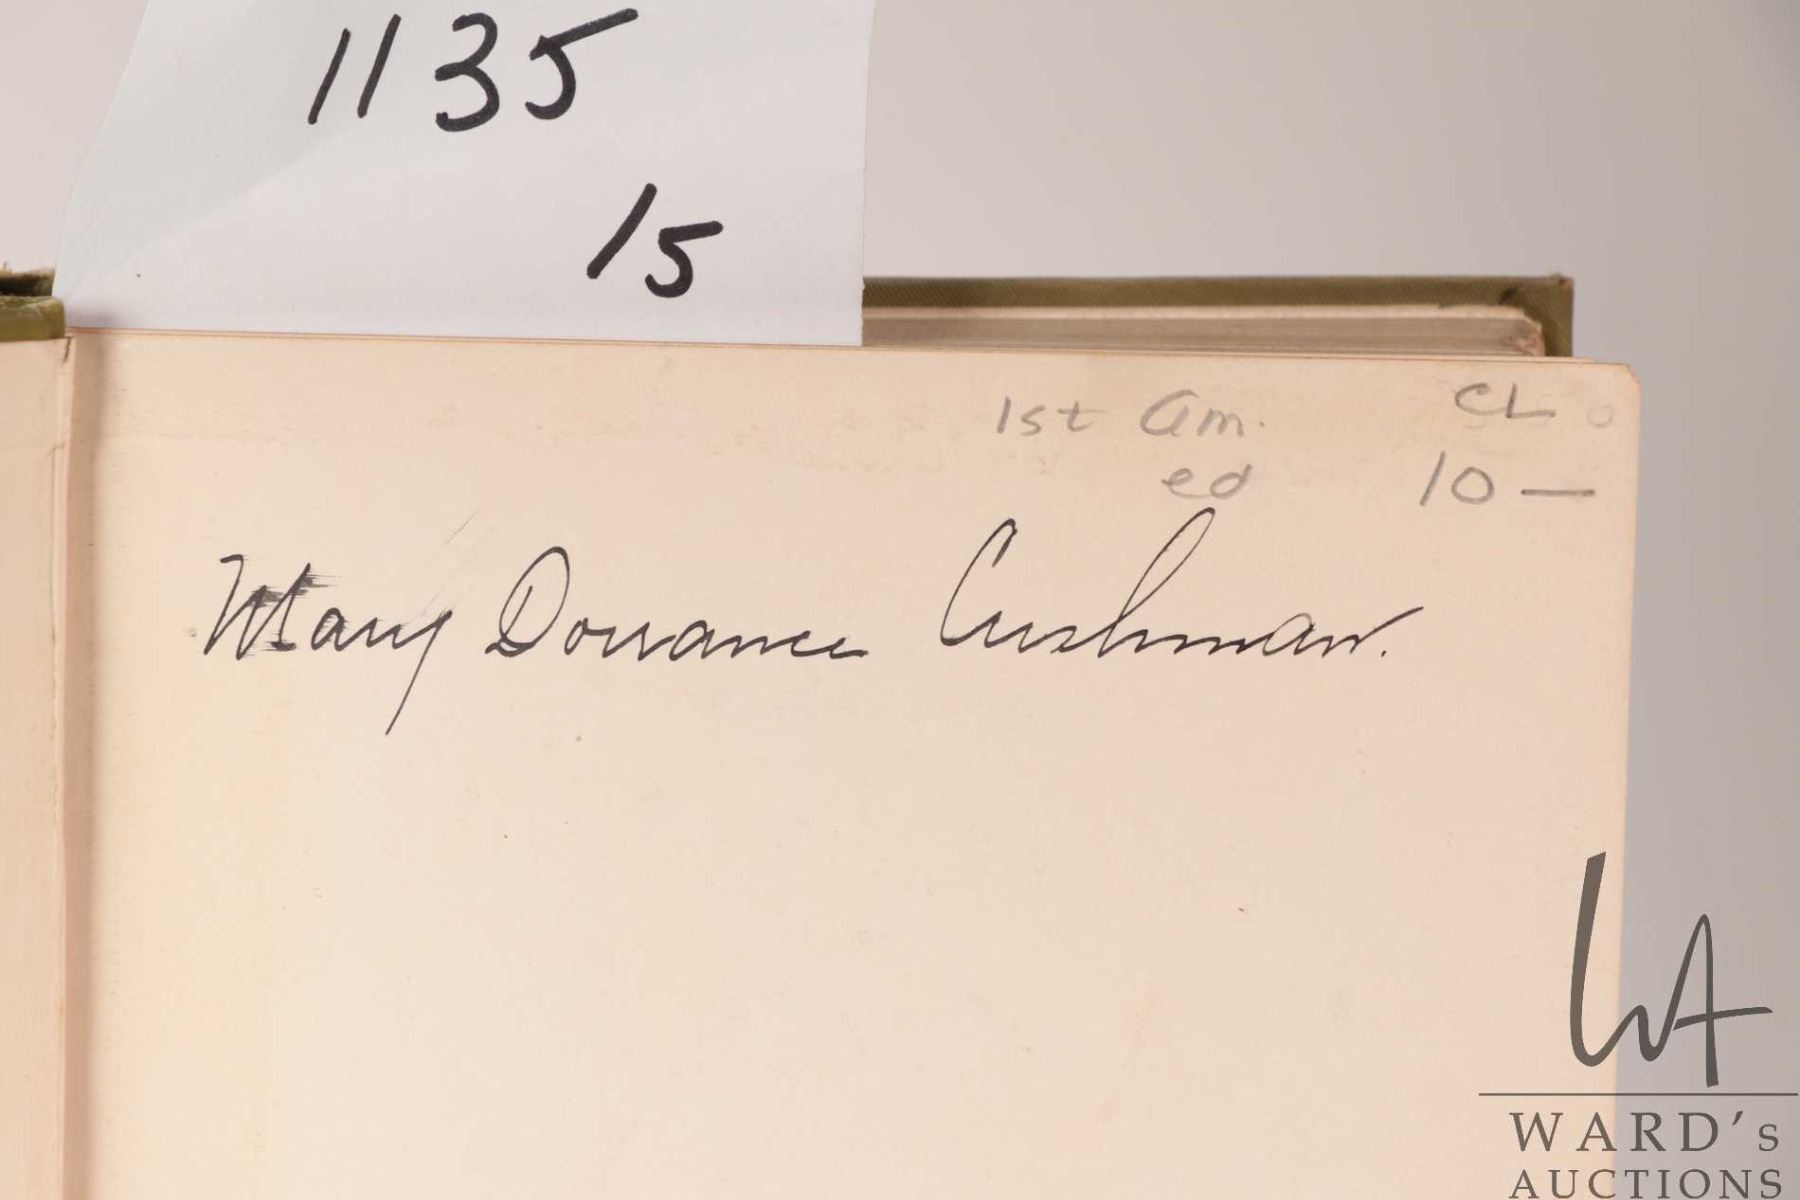 1135
15
1st Am. CL
ed 10 —
Mary Dorrance Cushman.
WA
WARD's
AUCTIONS